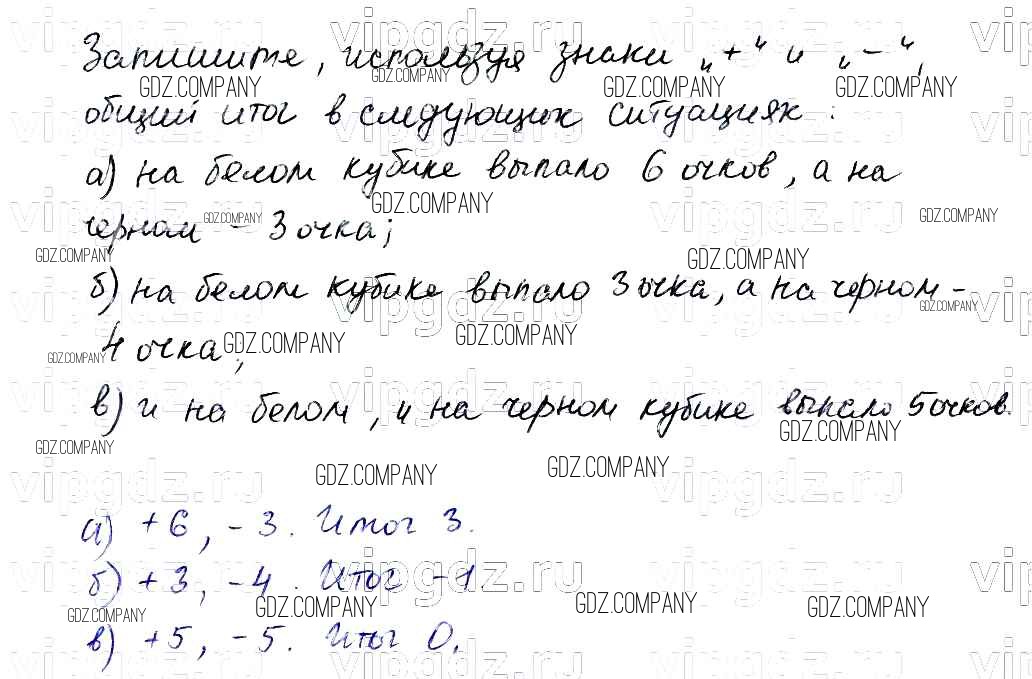 Запишите, используя знаки „+" и „-",
общий итог в следующих ситуациях:
а) на белом кубике выпало 6 очков, а на
черном - 3 очка;
б) на белом кубике выпало 3 очка, а на черном -
4 очка;
в) и на белом, и на черном кубике выпало 5 очков.
а) +6, -3. Итог 3.
б) +3, -4. Итог -1.
в) +5, -5. Итог 0.